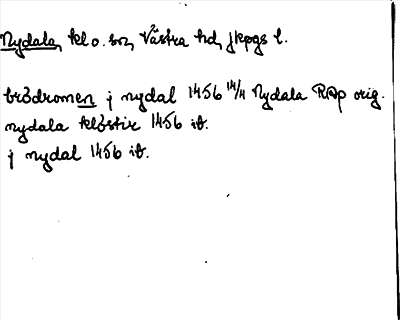 Nydala, kl o. sn, Västra hd, jkpgs l.
brödromen j nydal 1456 14/4 Nydala RAp orig.
nydala klöstir 1456 ib.
j nydal 1456 ib.